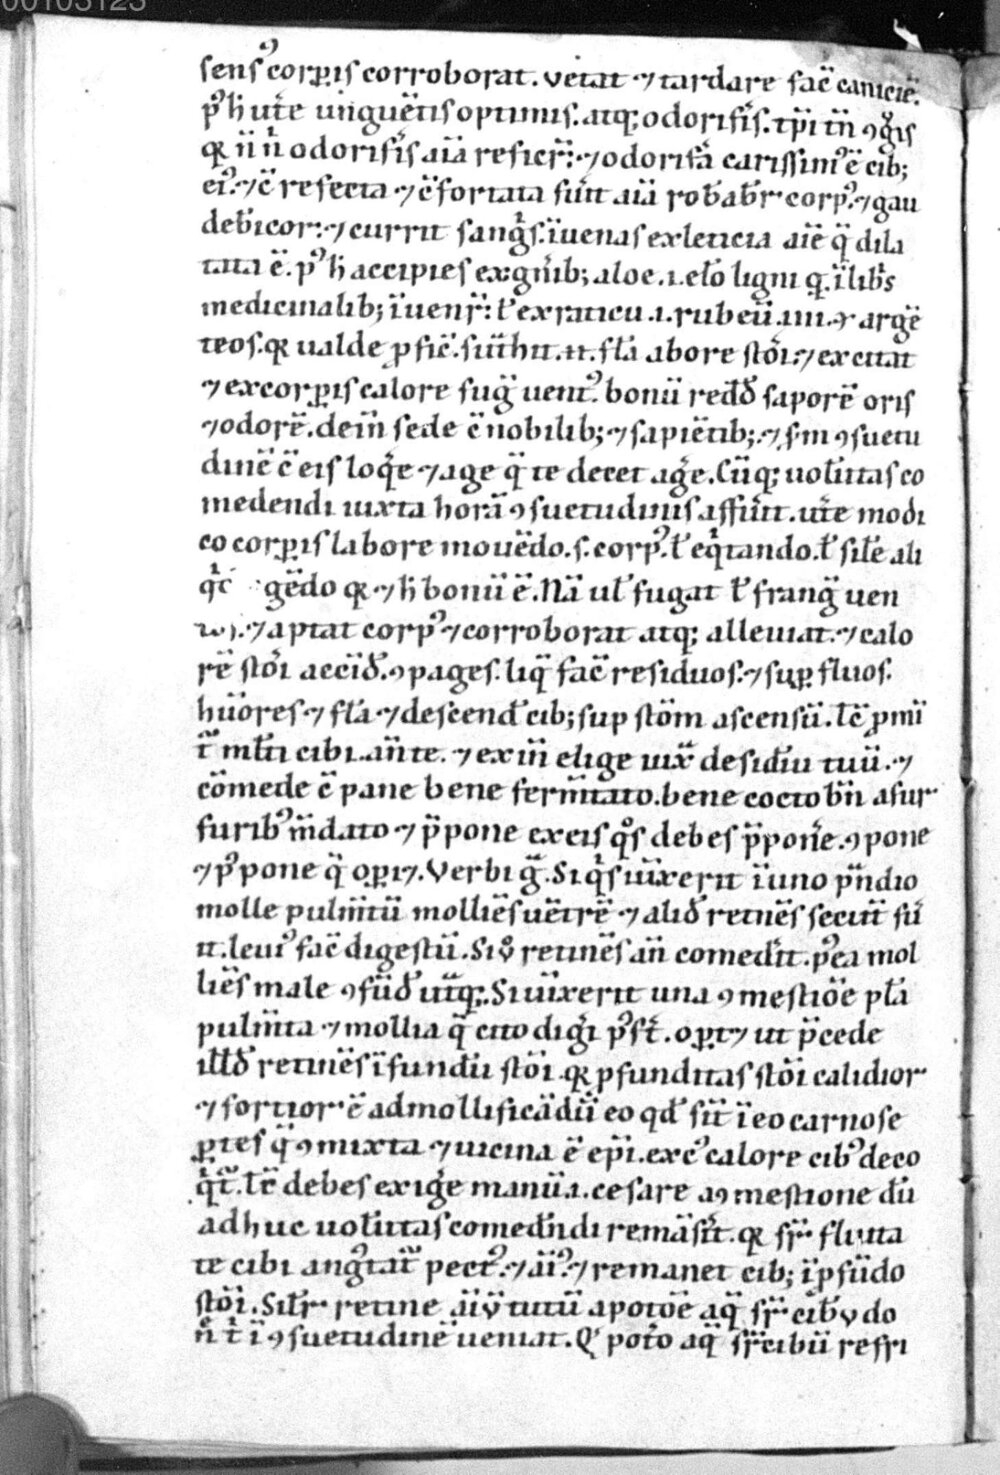 00103123
senſ᷒ corꝑis corroborat. vetat ⁊ tardare fac̄ caniciē.
p᷒ h̄ utēr unguētis optimis. atq; odorifis. tp̄i tn̄ ꝯgͥs
qꝛ n̄ nͥ odorifis aīa reficr̄. ⁊ odorifā carissim᷒ ē cib;
ei᷒. ⁊ c̄ refecta ⁊ cfortata fūīt aīa rob̄ab̄r corp᷒. ⁊ gau
deb̄ cor. ⁊ currit sangͥs ī uenas ex leticia aīe q̄ dila
tata ē. p᷒ h̄ accipies ex gͥnib; aloe .i. eƚo ligni q. ī libͥs
medicinalib; īuenr̄. ƚ ex raticu .i. rubeū .iiii. ⁊ argē
teos. qꝛ ualde ꝓfic̄. sūt h̄ .ii. fƚa ab ore stōi. ⁊ excitat
⁊ ex corꝑis calore sug̃ uent᷒. bonū redd̄ saporē oris
⁊ odorē. dein̄ sede c̄ nobilib; ⁊ sapiētib; ⁊ s̄m ꝯsuetu
dinē c̄ eis loqͥe ⁊ age q̄ te decet agͥe. Cūq; uolūtas co
medendi iuxta horā ꝯsuetudinis affūīt. utēr modi
co corꝑis labore mouēdo. s. corp᷒. ƚ eqͥtando. ƚ siƚe ali
qͥc gēdo qꝛ ⁊ h̄ bonū ē. Nā ul᷒ fugat ƚ frang̃ uen
⁊ aptat corp᷒ ⁊ corroborat atq; alleuiat. ⁊ calo
rē stōi accēd̄. ꝯpages. liq̄ fac̄ residuos. ⁊ suꝑfluos.
hūores ⁊ fƚa ⁊ descend̄ cib; sup stōm ascensū. tc̄ ꝓmī
t̄ᷓ mƚti cibi an̄ te. ⁊ ex īn elige iux̄ desid̄iu tuū. ⁊
cōmede c̄ pane bene ferm̄tato. bene cocto bn̄ a fur
furib᷒ m̄dato ⁊ p̄pone ex eis qͦs debes p̄ponͥe. ꝯpone
⁊ p᷒pone q̄ oꝑt⁊. Verbi gᷓ. Si qͥs uīxerit ī uno pn̄dio
molle pulm̄tū molliēs uētrē ⁊ aliđ retinēs secut̄ sū
it. leui᷒ fac̄ digestū. Si v̊ retinēs an̄ comed̄it. p᷒ea mol
liēs male ꝯfūđ ut̄ᷓq;. Si uīxerit una ꝯmestiōe pƚa
pulm̄ta ⁊ mollia q̄ cito digͥi p᷒sͥt. oꝑt⁊ ut p̄cede
iƚƚđ retinēs ī fundū stōi. qꝛ ꝓfunditas stōi calidior
⁊ fortior ē ad mollificādū eo qđ sīt ī eo carnose
ꝑtes q̄ ꝯmixta ⁊ uicina ē ep̄i. ex c᷒ calore cib᷒ deco
qͥt᷑. tc̄ debes exigͥe manū .i. cesare a ꝯmestione dū
adhuc uolūtas comed̄ndi remāsͥt. qꝛ sr̄ fluita
te cibi ang᷒tat᷑ pect᷒. ⁊ aī᷒. ⁊ remanet cib; ī ꝓfūdo
stōi. Siƚr retine aī v̄tutū a potōe aq̄ sr̄ cib̄ v do
nͥ t̄ ī ꝯsuetudinē ueniat. Qꝛ poto aq̄ sr̄ cibū refri